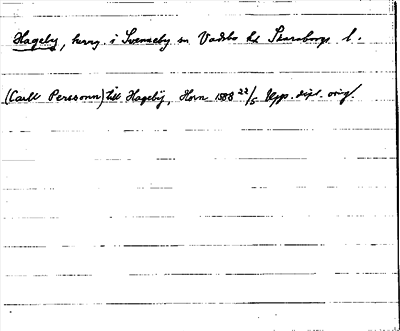 Hageby, herrg. i Svenneby sn Vadsbo hd Skaraborgs l.
(Carll Persson) till Hageby, Horn 1588 22/5 Upps. dipl. orig.